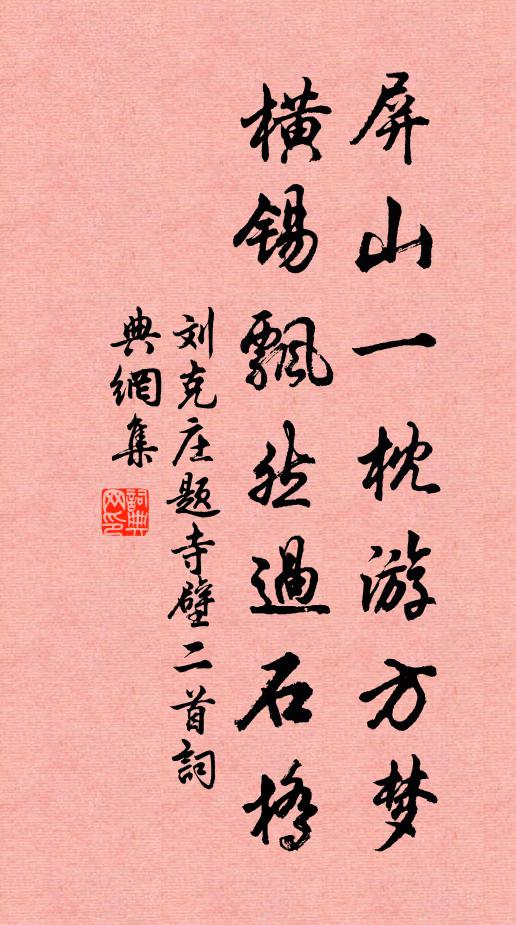 屏山一枕游方梦
横锡飘然过石桥
刘克庄题寺壁二首詞
典網集
詞典網印